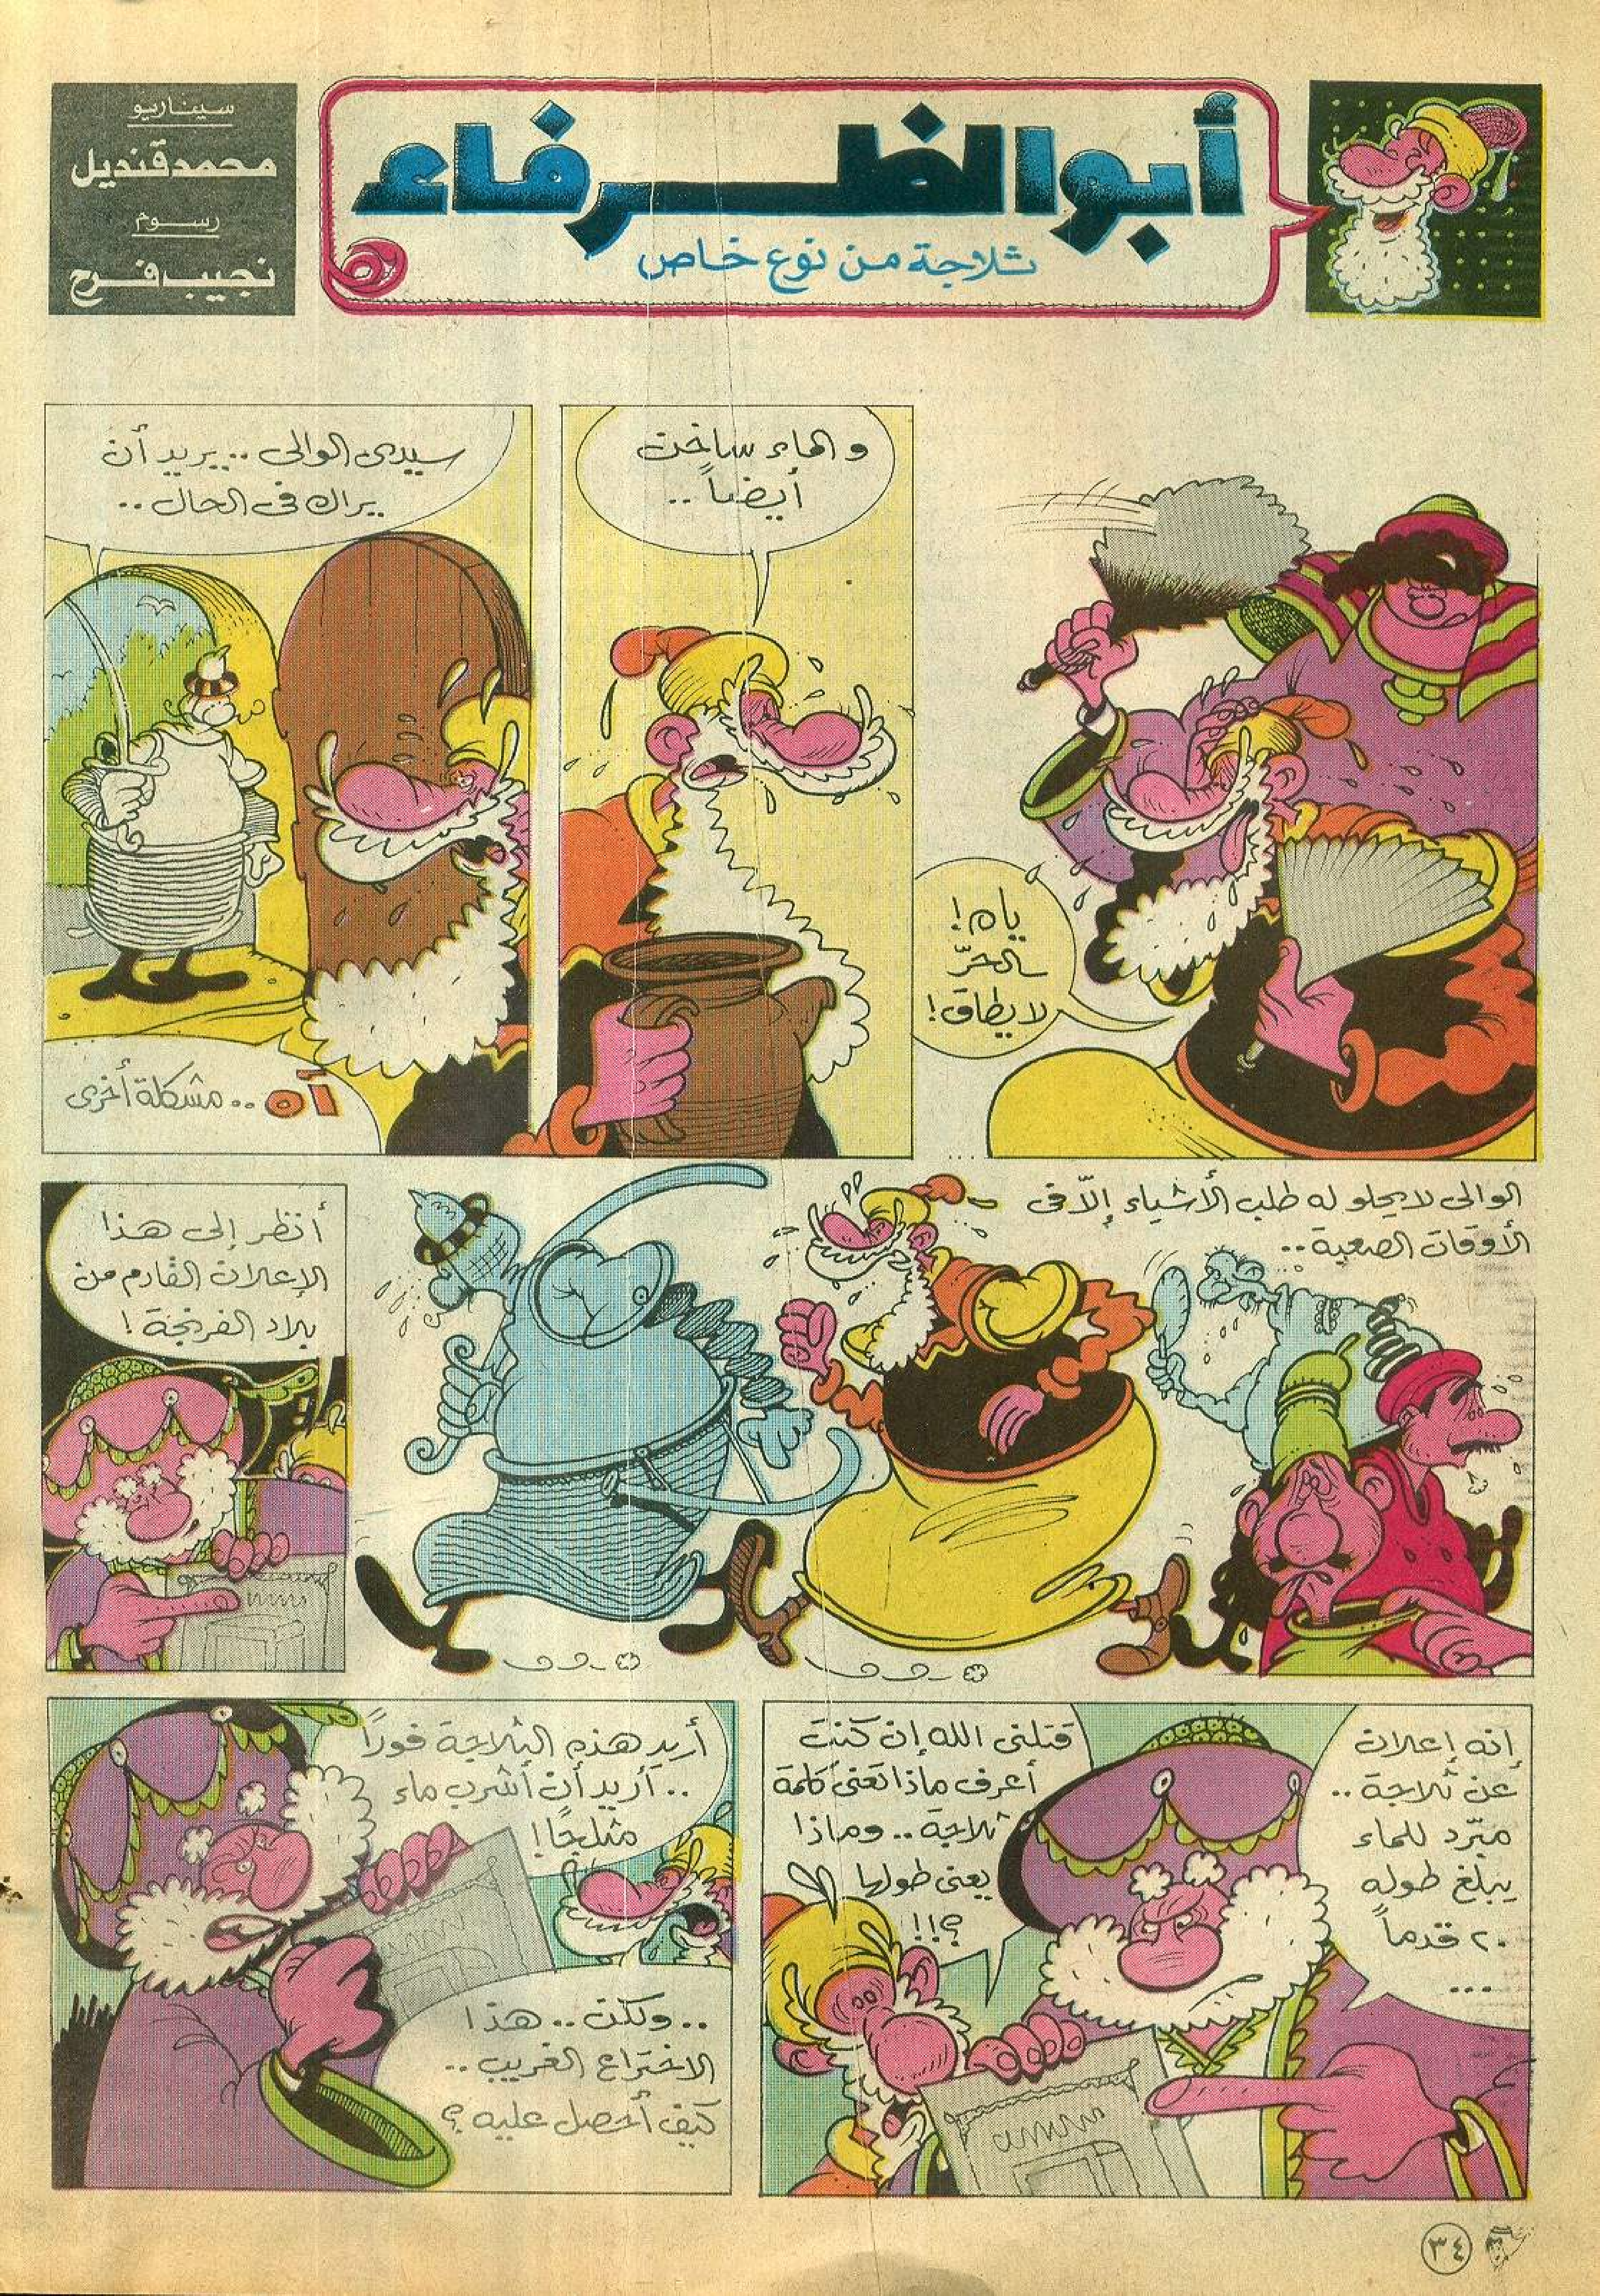 أبوالظرفاء
ثلاجة من نوع خاص
سيناريو
محمد قنديل
رسوم
نجيب فرح
ياه!
الحرّ
لا يطاق!
والماء ساخن
أيضاً..
سيدى الوالى.. يريد أن
يراك فى الحال..
آه.. مشكلة أخرى
الوالى لا يحلو له طلب الأشياء إلاّ فى
الأوقات الصعبة..
أنظر إلى هذا
الإعلان القادم من
بلاد الفرنجة!
إنه إعلان
عن ثلاجة..
مبّرد للماء
يبلغ طوله
٢٠ قدماً
...
قتلنى الله إن كنت
أعرف ماذا تعنى كلمة
ثلاجة.. وماذا
يعنى طولها
؟!!
أريد هذه الثلاجة فورًا
.. أريد أن أشرب ماء
مثلجًا!
..ولكن.. هذا
الاختراع الغريب..
كيف أحصل عليه؟
٣٤